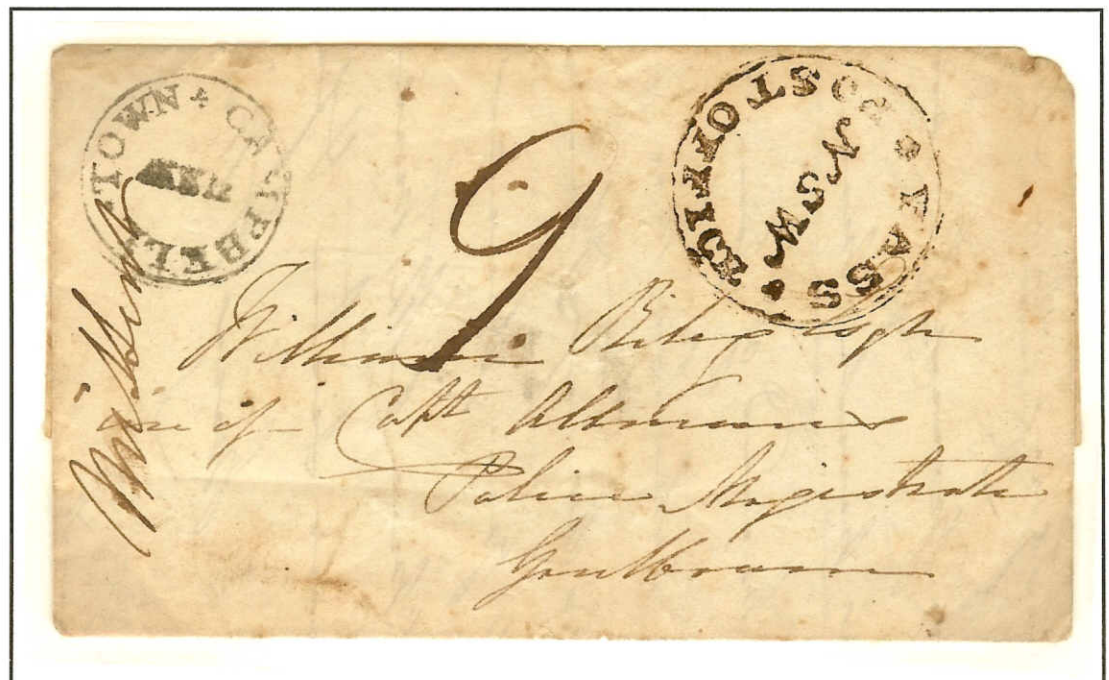 CAMPBELLTOWN
NSW
POST OFFICE YASS
NSW
9
Missent
William Riley Esqre
care of Captn Allman
Police Magistrate
Goulbourn